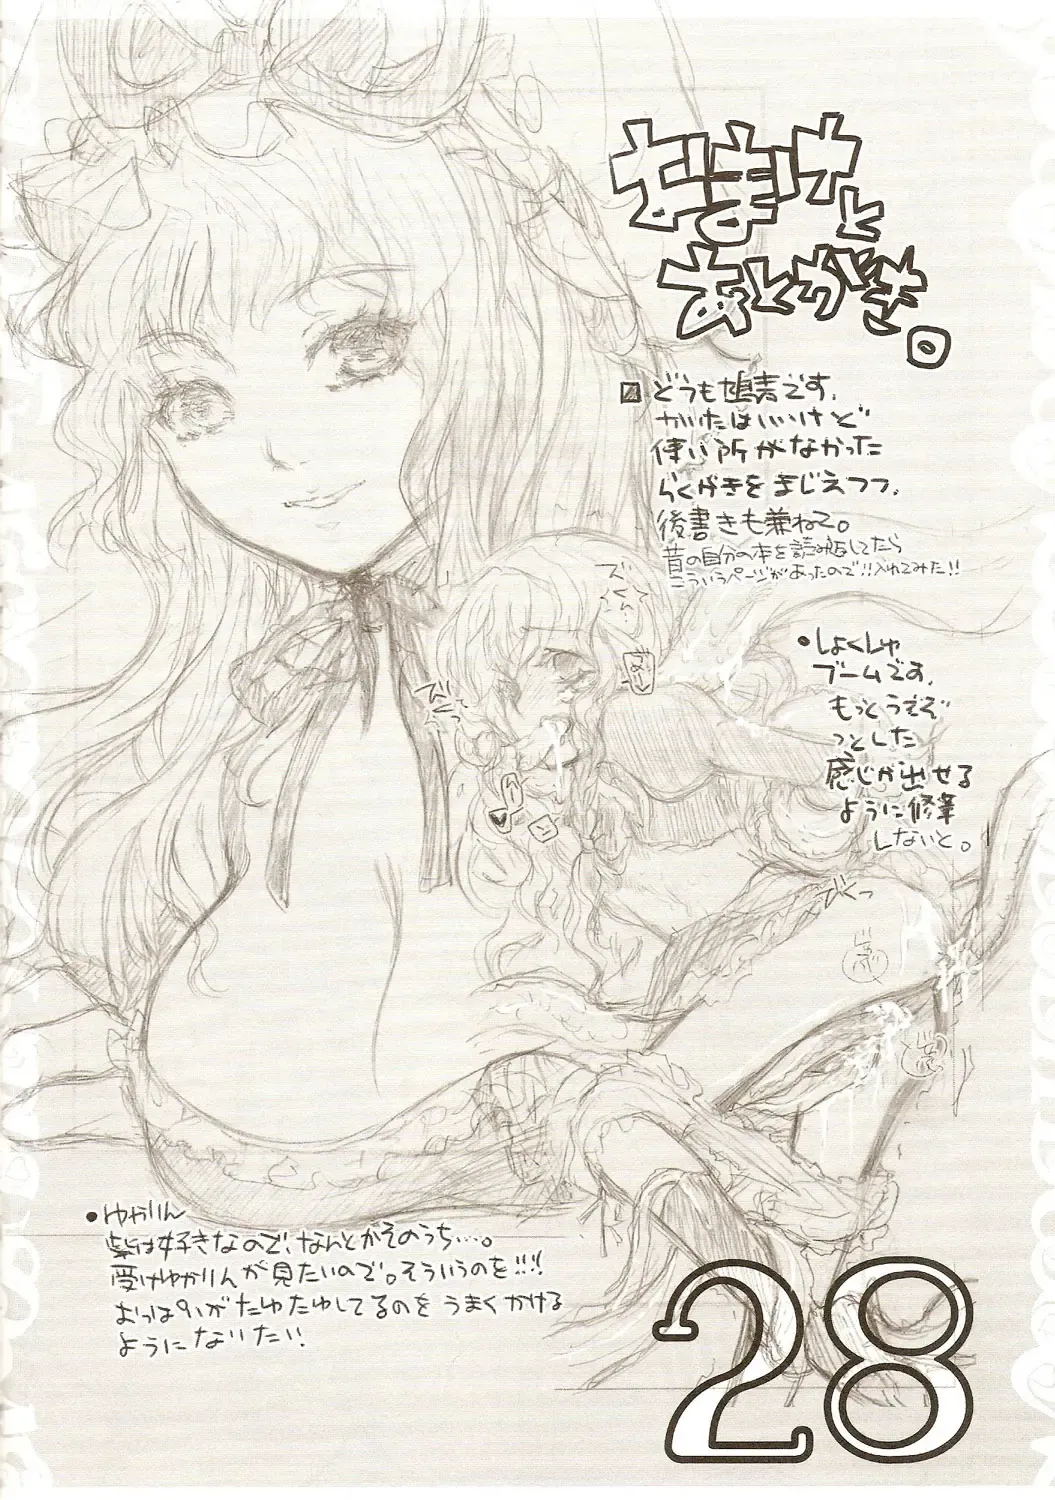 おまけと
あとがき。
どうも鳩麦です。
かいたはいいけど
使い所がなかった
らくがきをまじえつつ、
後書きも兼ねて。
昔の自分の本を読み返してたら
こういうページがあったので!!入れてみた!!
●しょくしゅ
ブームです。
もっとうぞぞ
っとした
感じが出せる
ように修業
しないと。
びくっ
●ゆかりん
紫は好きなので、なんとかそのうち…。
受けゆかりんが見たいので。そういうのを!!!
おっぱいがたゆたゆしてるのをうまくかける
ようになりたい!
28